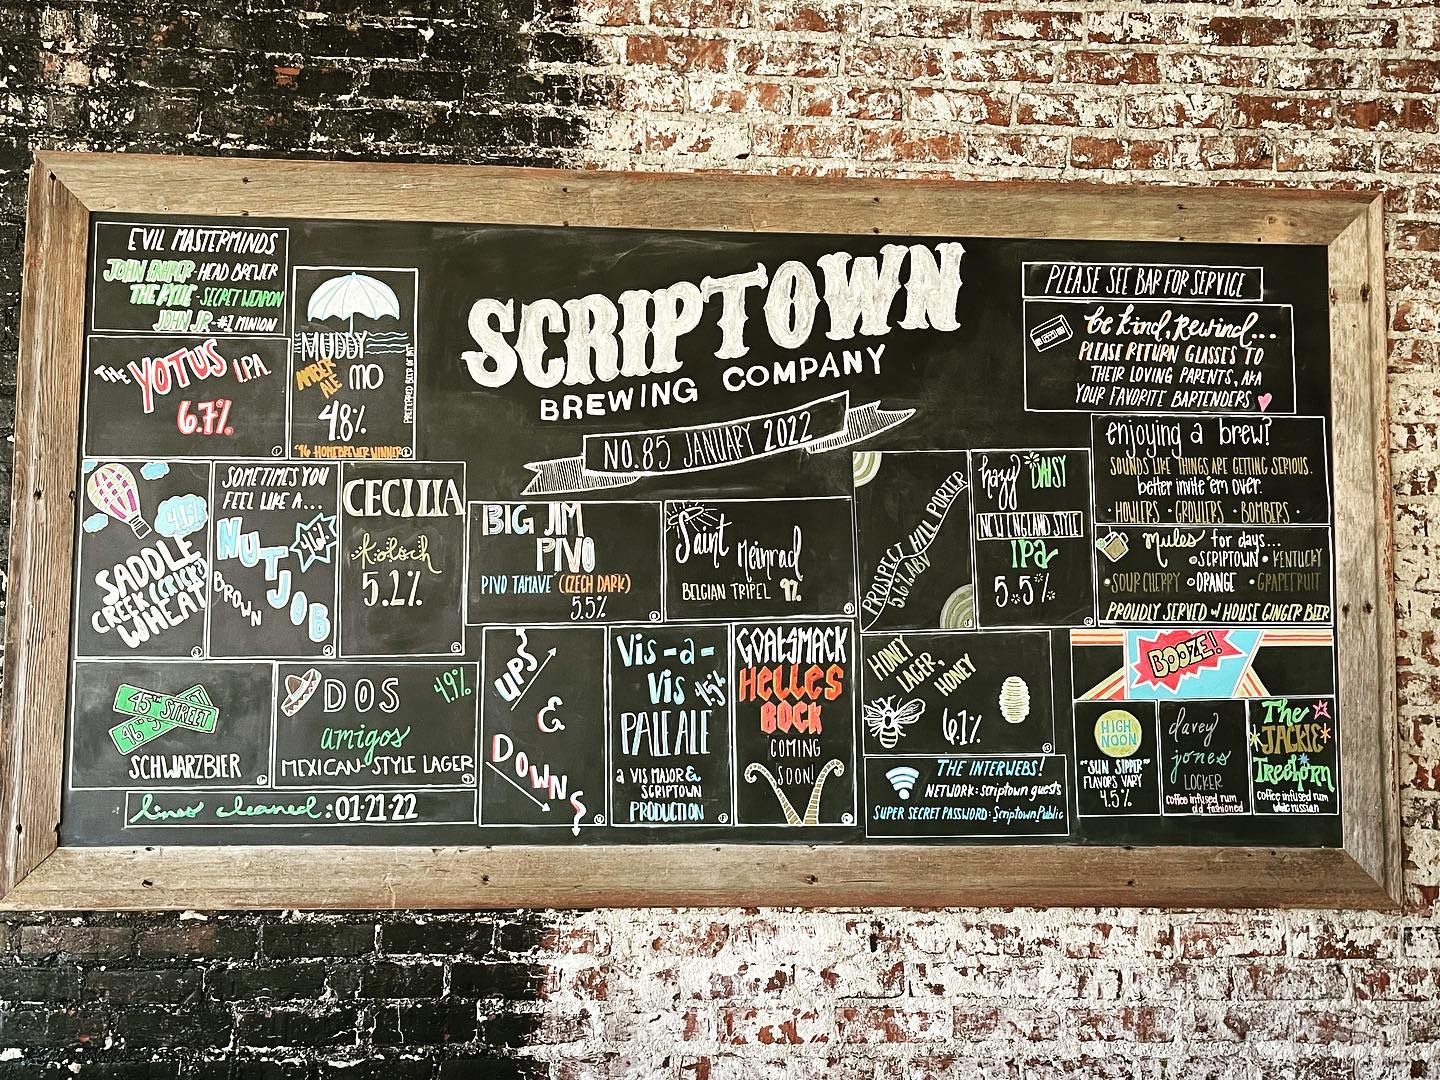 EVIL MASTERMINDS
JOHN FAHRER - HEAD BREWER
THE KYLE - SECRET WEAPON
JOHN JR - #1 MINION
THE YOTUS I.P.A.
6.7%
MUDDY
AMBER ALE
MO
4.8%
'16 HOMEBREWER WINNER
SCRIPTOWN
BREWING COMPANY
NO.85 JANUARY 2022
PLEASE SEE BAR FOR SERVICE
be kind, Rewind...
PLEASE RETURN GLASSES TO
THEIR LOVING PARENTS, AKA
YOUR FAVORITE BARTENDERS
enjoying a brew?
SOUNDS LIKE THINGS ARE GETTING SERIOUS.
better invite 'em over.
HOWLERS · GROWLERS · BOMBERS ·
mules for days...
· SCRIPTOWN · KENTUCKY
· SOUR CHERRY · ORANGE · GRAPEFRUIT
PROUDLY SERVED w/ HOUSE GINGER BEER
SADDLE
CREEK
WHEAT
SOMETIMES YOU
FEEL LIKE A...
NUTJOB
BROWN
CECILIA
kölsch
5.2%
BIG JIM
PIVO
PIVO TAMAVE' (CZECH DARK)
5.5%
Saint Meinrad
BELGIAN TRIPEL 9%
PROSPECT HILL PORTER
5.6% ABV
hazy DAISY
NEW ENGLAND STYLE
IPA
5.5%
45TH STREET
46TH ST
SCHWARZBIER
DOS
4.9%
amigos
MEXICAN-STYLE LAGER
lines cleaned: 01-21-22
UPS
&
DOWNS
Vis-a-
Vis
PALE ALE
a VIS MAJOR &
SCRIPTOWN
PRODUCTION
GOATSMACK
HELLES
BOCK
COMING
SOON!
HONEY
LAGER,
HONEY
6.1%
THE INTERWEBS!
NETWORK: scriptown guests
SUPER SECRET PASSWORD: ScriptownPublic
BOOZE!
HIGH
NOON
"SUN SIPPER"
FLAVORS VARY
4.5%
davey
jones'
LOCKER
coffee infused rum
old fashioned
The
JACKIE
Treehorn
coffee infused rum
white russian